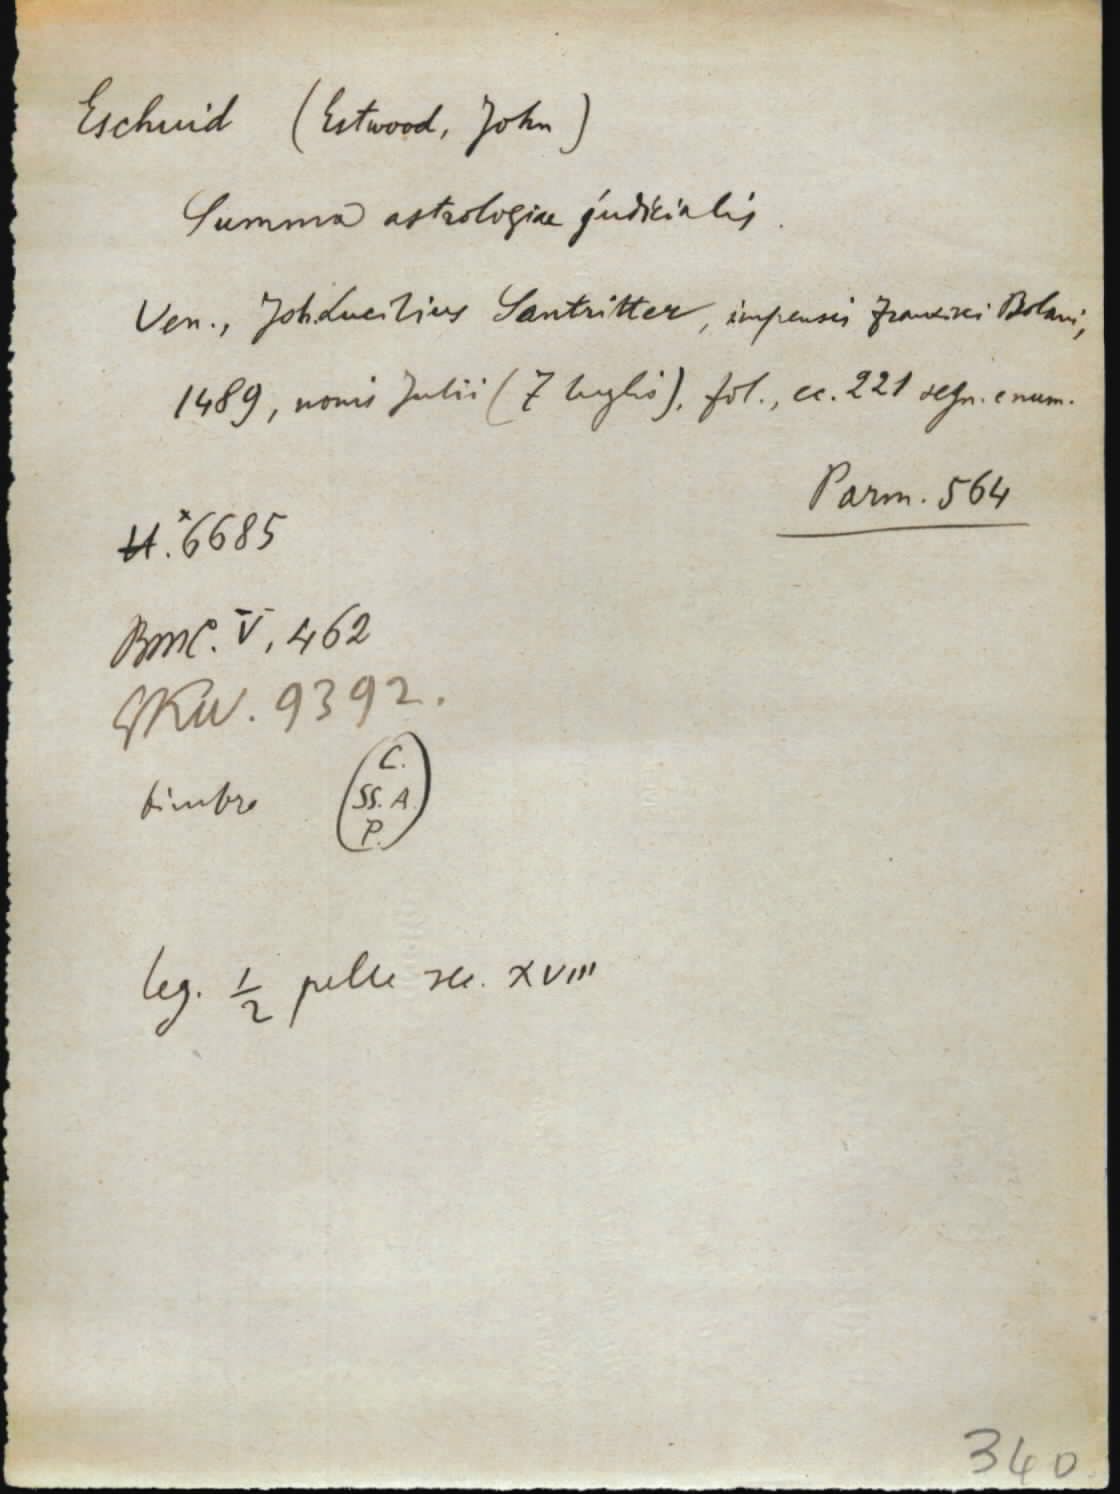 Eschuid (Estwood, John)
Summa astrologiae judicialis.
Ven., Joh. Lucilius Santritter, impensis Francisci Bolani,
1489, nonis Julii (7 luglio), fol., cc. 221 segn. e num.
Parm. 564
H.* 6685
BMC. V, 462
GKW. 9392.
timbro
C.
SS. A.
P.
leg. 1/2 pelle sec. XVIII
340